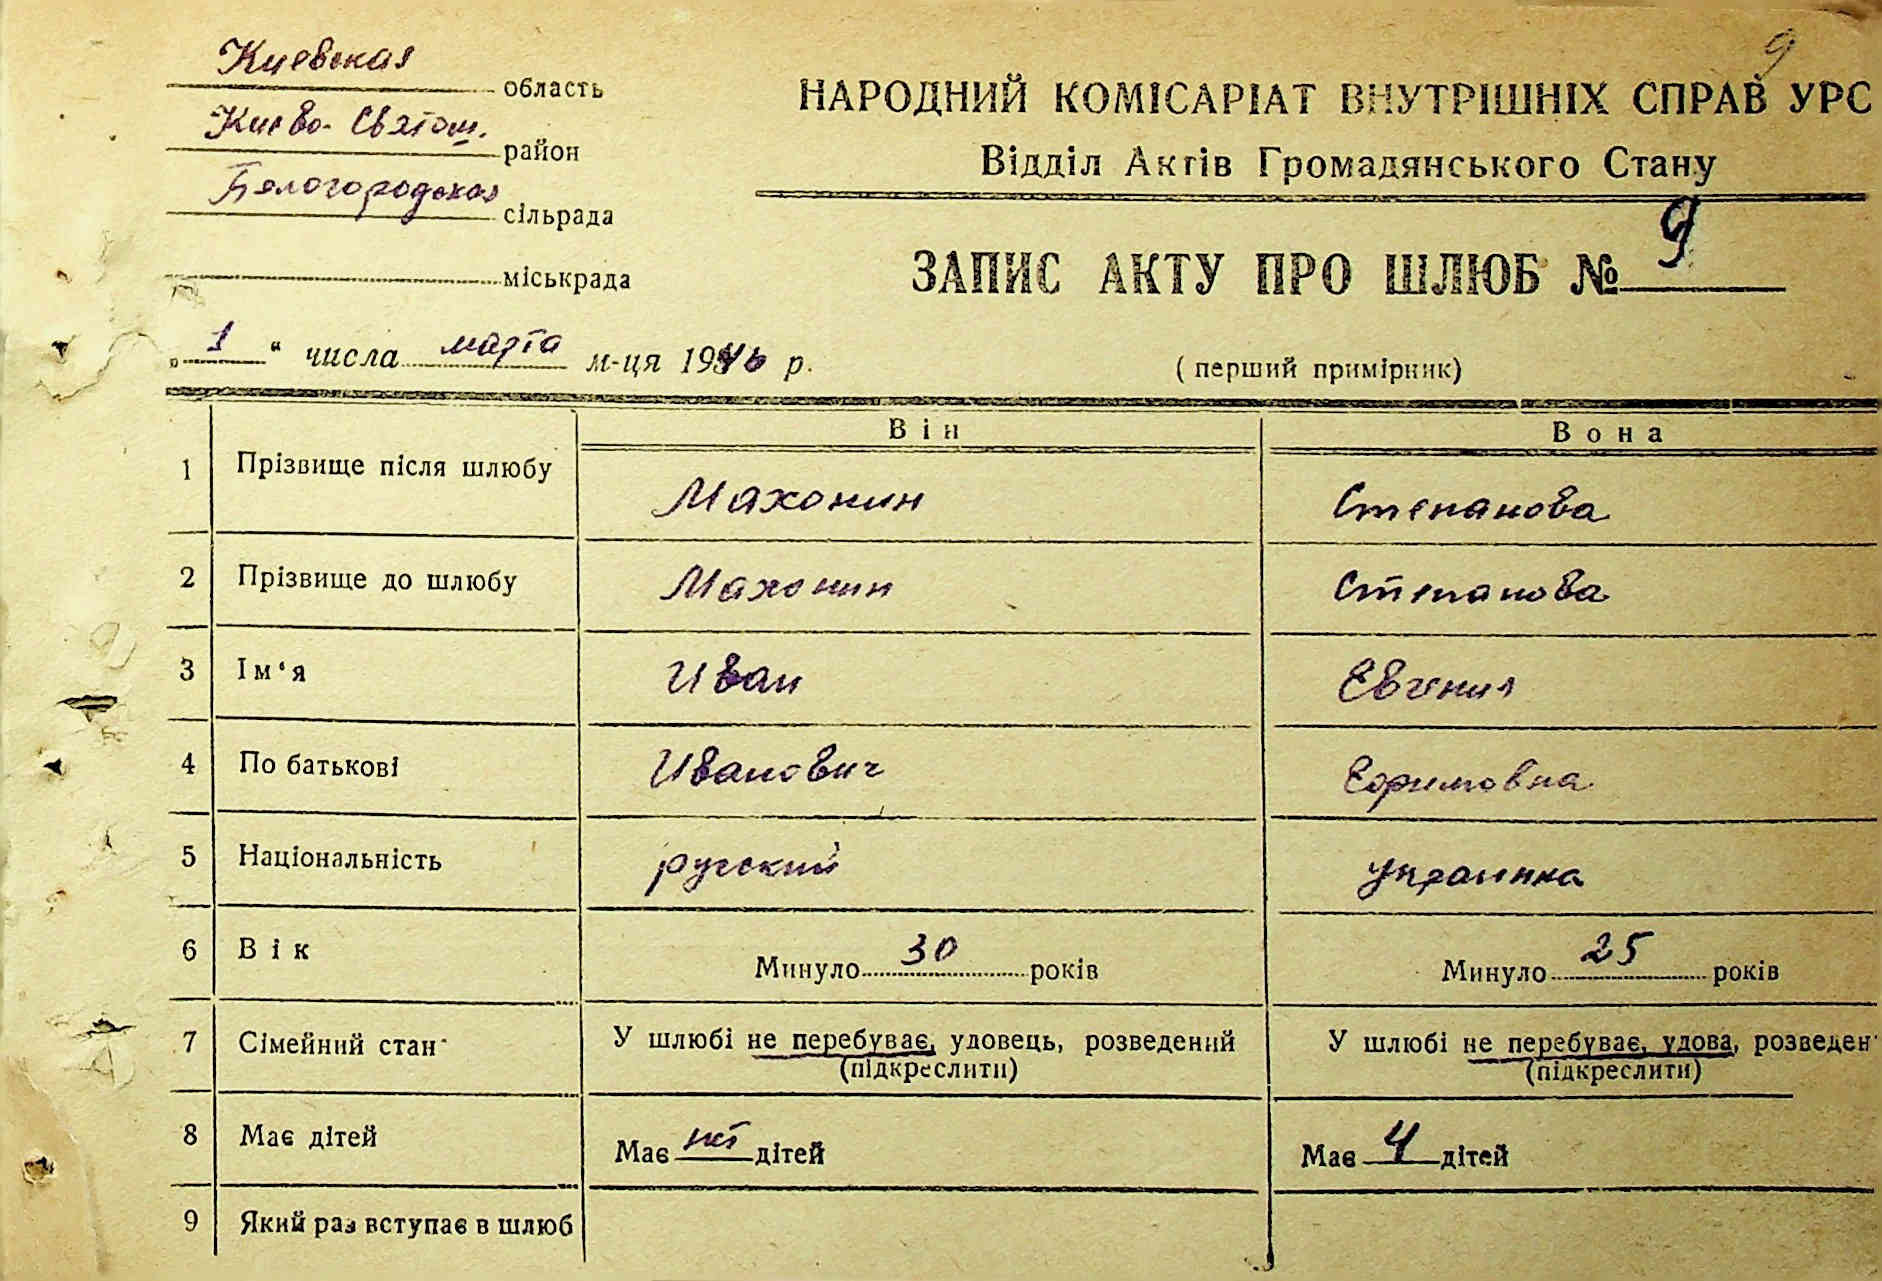 9
Киевская область
Киево-Святош. район
Белогородская сільрада
міськрада
НАРОДНИЙ КОМІСАРІАТ ВНУТРІШНІХ СПРАВ УРСР
Відділ Актів Громадянського Стану
ЗАПИС АКТУ ПРО ШЛЮБ № 9
„1“ числа марта м-ця 1946 р.
(перший примірник)
Він Вона
1 Прізвище після шлюбу Махонин Степанова
2 Прізвище до шлюбу Махонин Степанова
3 Ім'я Иван Евгения
4 По батькові Иванович Ефимовна
5 Національність русский украинка
6 Вік Минуло 30 років Минуло 25 років
7 Сімейний стан У шлюбі не перебуває, удовець, розведений У шлюбі не перебуває, удова, розведен
(підкреслити) (підкреслити)
8 Має дітей Має нет дітей Має 4 дітей
9 Який раз вступає в шлюб